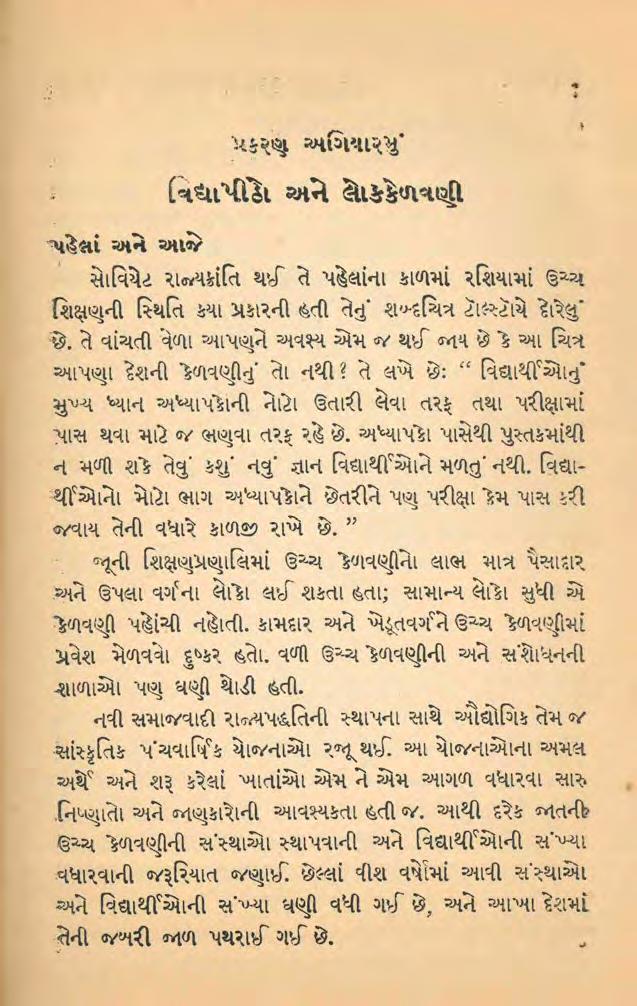 પ્રકરણ અગિયારમું
વિદ્યાપીઠો અને લોકકેળવણી
પહેલાં અને આજે
સોવિયેટ રાજ્યક્રાંતિ થઈ તે પહેલાંના કાળમાં રશિયામાં ઉચ્ચ
શિક્ષણની સ્થિતિ કયા પ્રકારની હતી તેનું શબ્દચિત્ર ટૉલ્સ્ટૉયે દોરેલું
છે. તે વાંચતી વેળા આપણને અવશ્ય એમ જ થઈ જાય છે કે આ ચિત્ર
આપણા દેશની કેળવણીનું તો નથી? તે લખે છેઃ “ વિદ્યાર્થીઓનું
મુખ્ય ધ્યાન અધ્યાપકોની નોટો ઉતારી લેવા તરફ તથા પરીક્ષામાં
પાસ થવા માટે જ ભણવા તરફ રહે છે. અધ્યાપકો પાસેથી પુસ્તકમાંથી
ન મળી શકે તેવું કશું નવું જ્ઞાન વિદ્યાર્થીઓને મળતું નથી. વિદ્યા-
ર્થીઓનો મોટો ભાગ અધ્યાપકોને છેતરીને પણ પરીક્ષા કેમ પાસ કરી
જવાય તેની વધારે કાળજી રાખે છે. ”
જૂની શિક્ષણપ્રણાલિમાં ઉચ્ચ કેળવણીનો લાભ માત્ર પૈસાદાર
અને ઉપલા વર્ગના લોકો લઈ શકતા હતા; સામાન્ય લોકો સુધી એ
કેળવણી પહોંચી નહોતી. કામદાર અને ખેડૂતવર્ગને ઉચ્ચ કેળવણીમાં
પ્રવેશ મેળવવો દુષ્કર હતો. વળી ઉચ્ચ કેળવણીની અને સંશોધનની
શાળાઓ પણ ઘણી થોડી હતી.
નવી સમાજવાદી રાજ્યપદ્ધતિની સ્થાપના સાથે ઔદ્યોગિક તેમ જ
સાંસ્કૃતિક પંચવાર્ષિક યોજનાઓ રજૂ થઈ. આ યોજનાઓના અમલ
અર્થે અને શરૂ કરેલાં ખાતાંઓ એમ ને એમ આગળ વધારવા સારુ
નિષ્ણાતો અને જાણકારોની આવશ્યકતા હતી જ. આથી દરેક જાતની
ઉચ્ચ કેળવણીની સંસ્થાઓ સ્થાપવાની અને વિદ્યાર્થીઓની સંખ્યા
વધારવાની જરૂરિયાત જણાઈ. છેલ્લાં વીશ વર્ષોમાં આવી સંસ્થાઓ
અને વિદ્યાર્થીઓની સંખ્યા ઘણી વધી ગઈ છે, અને આખા દેશમાં
તેની જબરી જાળ પથરાઈ ગઈ છે.